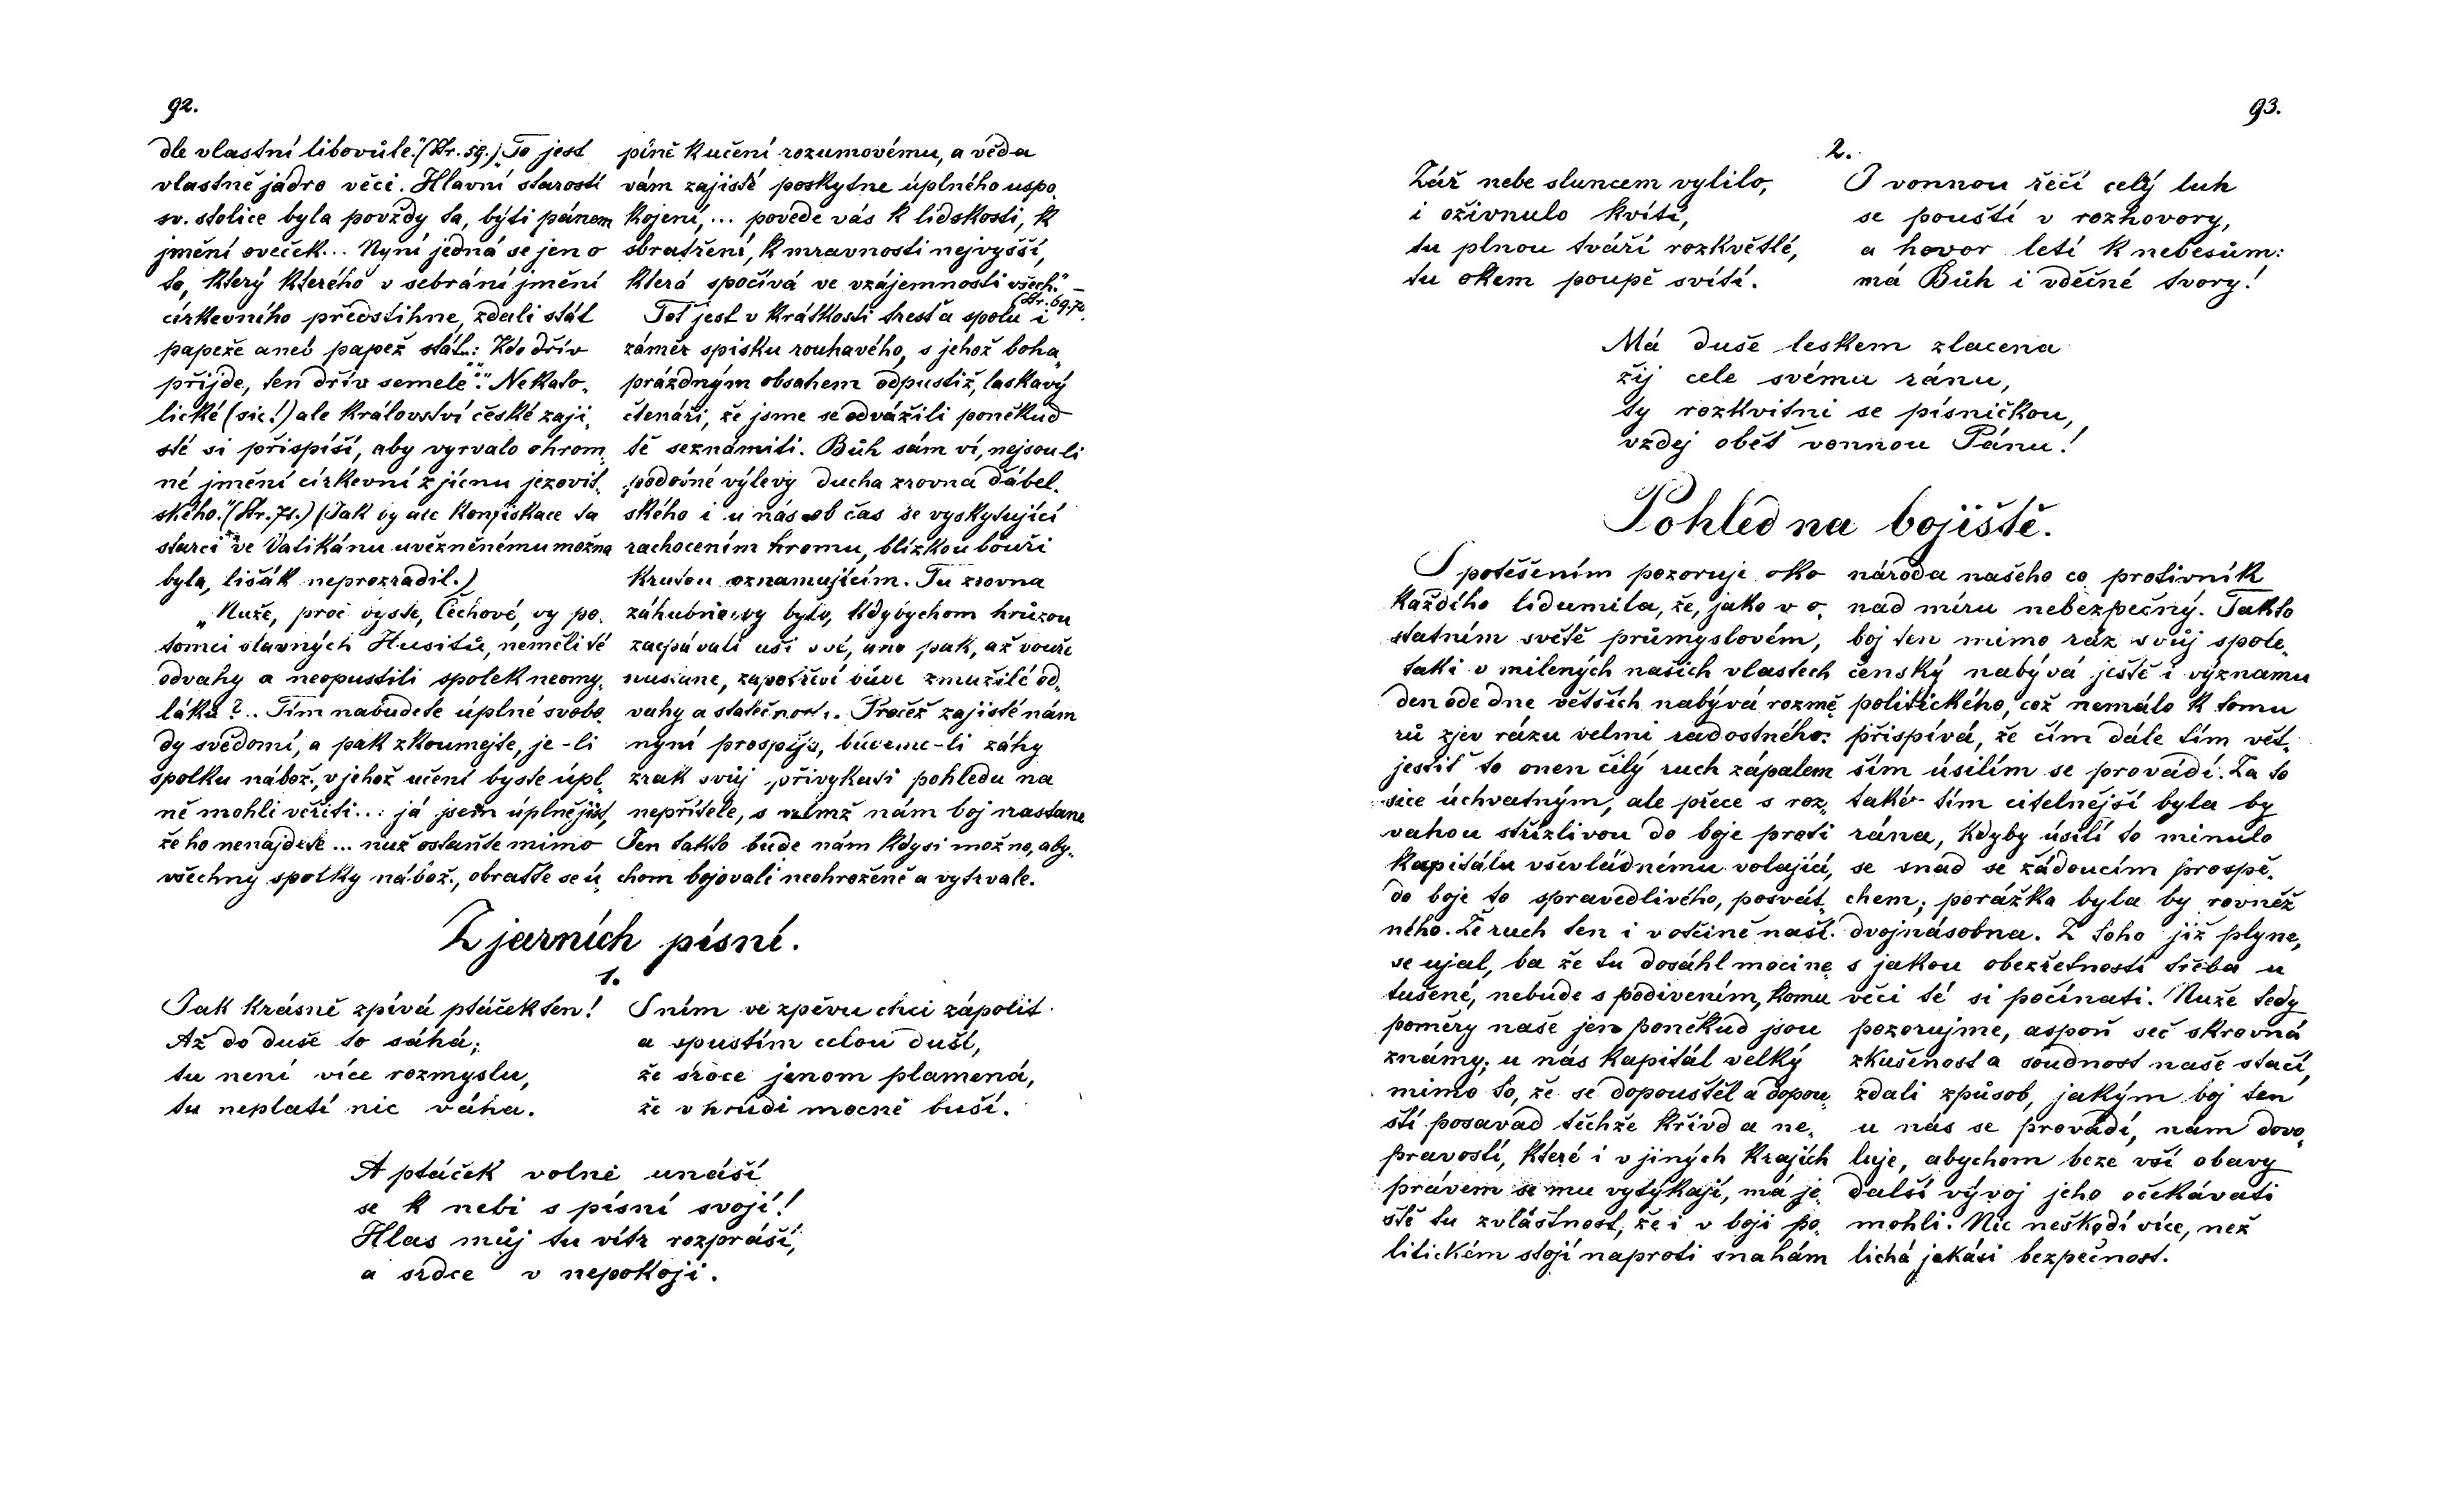 92.
dle vlastní libovůle." (Str. 59.) „To jest
vlastně jádro věci. Hlavní starostí
sv. stolice byla povždy ta, býti pánem
jmění oveček... Nyní jedná se jen o
to, který kterého v sebrání jmění
církevního předstihne, zdali stát
papeže aneb papež stát: Kdo dřív
přijde, ten dřív semele". Nekato„
lické (sic!) ale království české zaji„
sté si přispíší, aby vyrvalo ohrom„
né jmění církevní z jícnu jezovit„
ského." (Str. 71.) (Jak by ale konfiskace ta
starci ve Vatikánu uvězněnému možna
byla, lišák neprozradil.)
„Nuže, proč byste, Čechové, vy po„
tomci slavných Husitů, neměli té
odvahy a neopustili spolek neomy„
láků?.. Tím nabudete úplné svobo„
dy svědomí, a pak zkoumejte, je-li
spolku nábož., v jehož učení byste úpl„
ně mohli věřiti... já jsem úplně jist,
že ho nenajdete... nuž ostaňte mimo
všechny spolky nábož., obraťte se ú„
plně k učení rozumovému, a věda
vám zajisté poskytne úplného uspo„
kojení,... povede vás k lidskosti, k
sbratření, k mravnosti nejvyšší,
která spočívá ve vzájemnosti všech." –
(Str. 69.70.
Toť jest v krátkosti tresť a spolu i
záměr spisku rouhavého, s jehož boha„
prázdným obsahem odpustiž, laskavý
čtenáři, že jsme se odvážili poněkud
tě seznámiti. Bůh sám ví, nejsou-li
podobné výlevy ducha zrovna ďábel„
ského i u nás ob čas se vyskytující
rachocením hromu, blízkou bouři
krutou oznamujícím. Tu zrovna
záhubno by bylo, kdybychom hrůzou
zacpávali uši své, ano pak, až bouře
nastane, zapotřebí bude zmužilé od„
vahy a statečnosti. Pročež zajisté nám
nyní prospěje, budeme-li záhy
zrak svůj přivykati pohledu na
nepřítele, s nímž nám boj nastane
Jen takto bude nám kdysi možno, aby„
chom bojovali neohroženě a vytrvale.
Z jarních písní.
1.
Jak krásně zpívá ptáček ten!
Až do duše to sáhá;
tu není více rozmyslu,
tu neplatí nic váha.
S ním ve zpěvu chci zápolit
a spustím celou duší,
že srdce jenom plamená,
že v hrudi mocně buší.
A ptáček volně unáší
se k nebi s písní svojí!
Hlas můj tu vítr rozpráší,
a srdce v nepokoji.
93.
2.
Zář nebe sluncem vylilo,
i oživnulo kvítí,
tu plnou tváří rozkvětlé,
tu okem poupě svítí.
I vonnou řečí celý luh
se pouští v rozhovory,
a hovor letí k nebesům:
má Bůh i vděčné tvory!
Má duše leskem zlacena
žij cele svému ránu,
ty rozkvitni se písničkou,
vzdej oběť vonnou Pánu!
Pohled na bojiště.
S potěšením pozoruje oko
každého lidumila, že, jako v o„
statním světě průmyslovém,
taki v milených našich vlastech
den ode dne větších nabývá rozmě„
rů zjev rázu velmi radostného:
jestiť to onen čilý ruch zápalem
sice úchvatným, ale přece s roz„
vahou střízlivou do boje proti
kapitálu vševládnému volající,
do boje to spravedlivého, posvát„
ného. Že ruch ten i v otčině naší
se ujal, ba že tu dosáhl mocine
tušené, nebude s podivením, komu
poměry naše jen poněkud jsou
známy; u nás kapitál velký
mimo to, že se dopouštěl a dopou„
ští posavad těchže křivd a ne„
pravostí, které i v jiných krajích
právem se mu vytýkají, má je„
ště tu zvláštnost, že i v boji po„
litickém stojí naproti snahám
národa našeho co protivník
nad míru nebezpečný. Takto
boj ten mimo ráz svůj spole„
čenský nabývá ještě i významu
politického, což nemálo k tomu
přispívá, že čím dále tím vět„
ším úsilím se provádí. Za to
také tím citelnější byla by
rána, kdyby úsilí to minulo
se snad se žádoucím prospě„
chem; porážka byla by rovněž
dvojnásobna. Z toho již plyne,
s jakou obezřetností třeba u
věci té si počínati. Nuže tedy
pozorujme, aspoň seč skrovná
zkušenost a soudnost naše stačí,
zdali způsob, jakým boj ten
u nás se provádí, nám dovo„
luje, abychom beze vší obavy
další vývoj jeho očekávati
mohli. Nic neškodí více, než
lichá jakási bezpečnost.